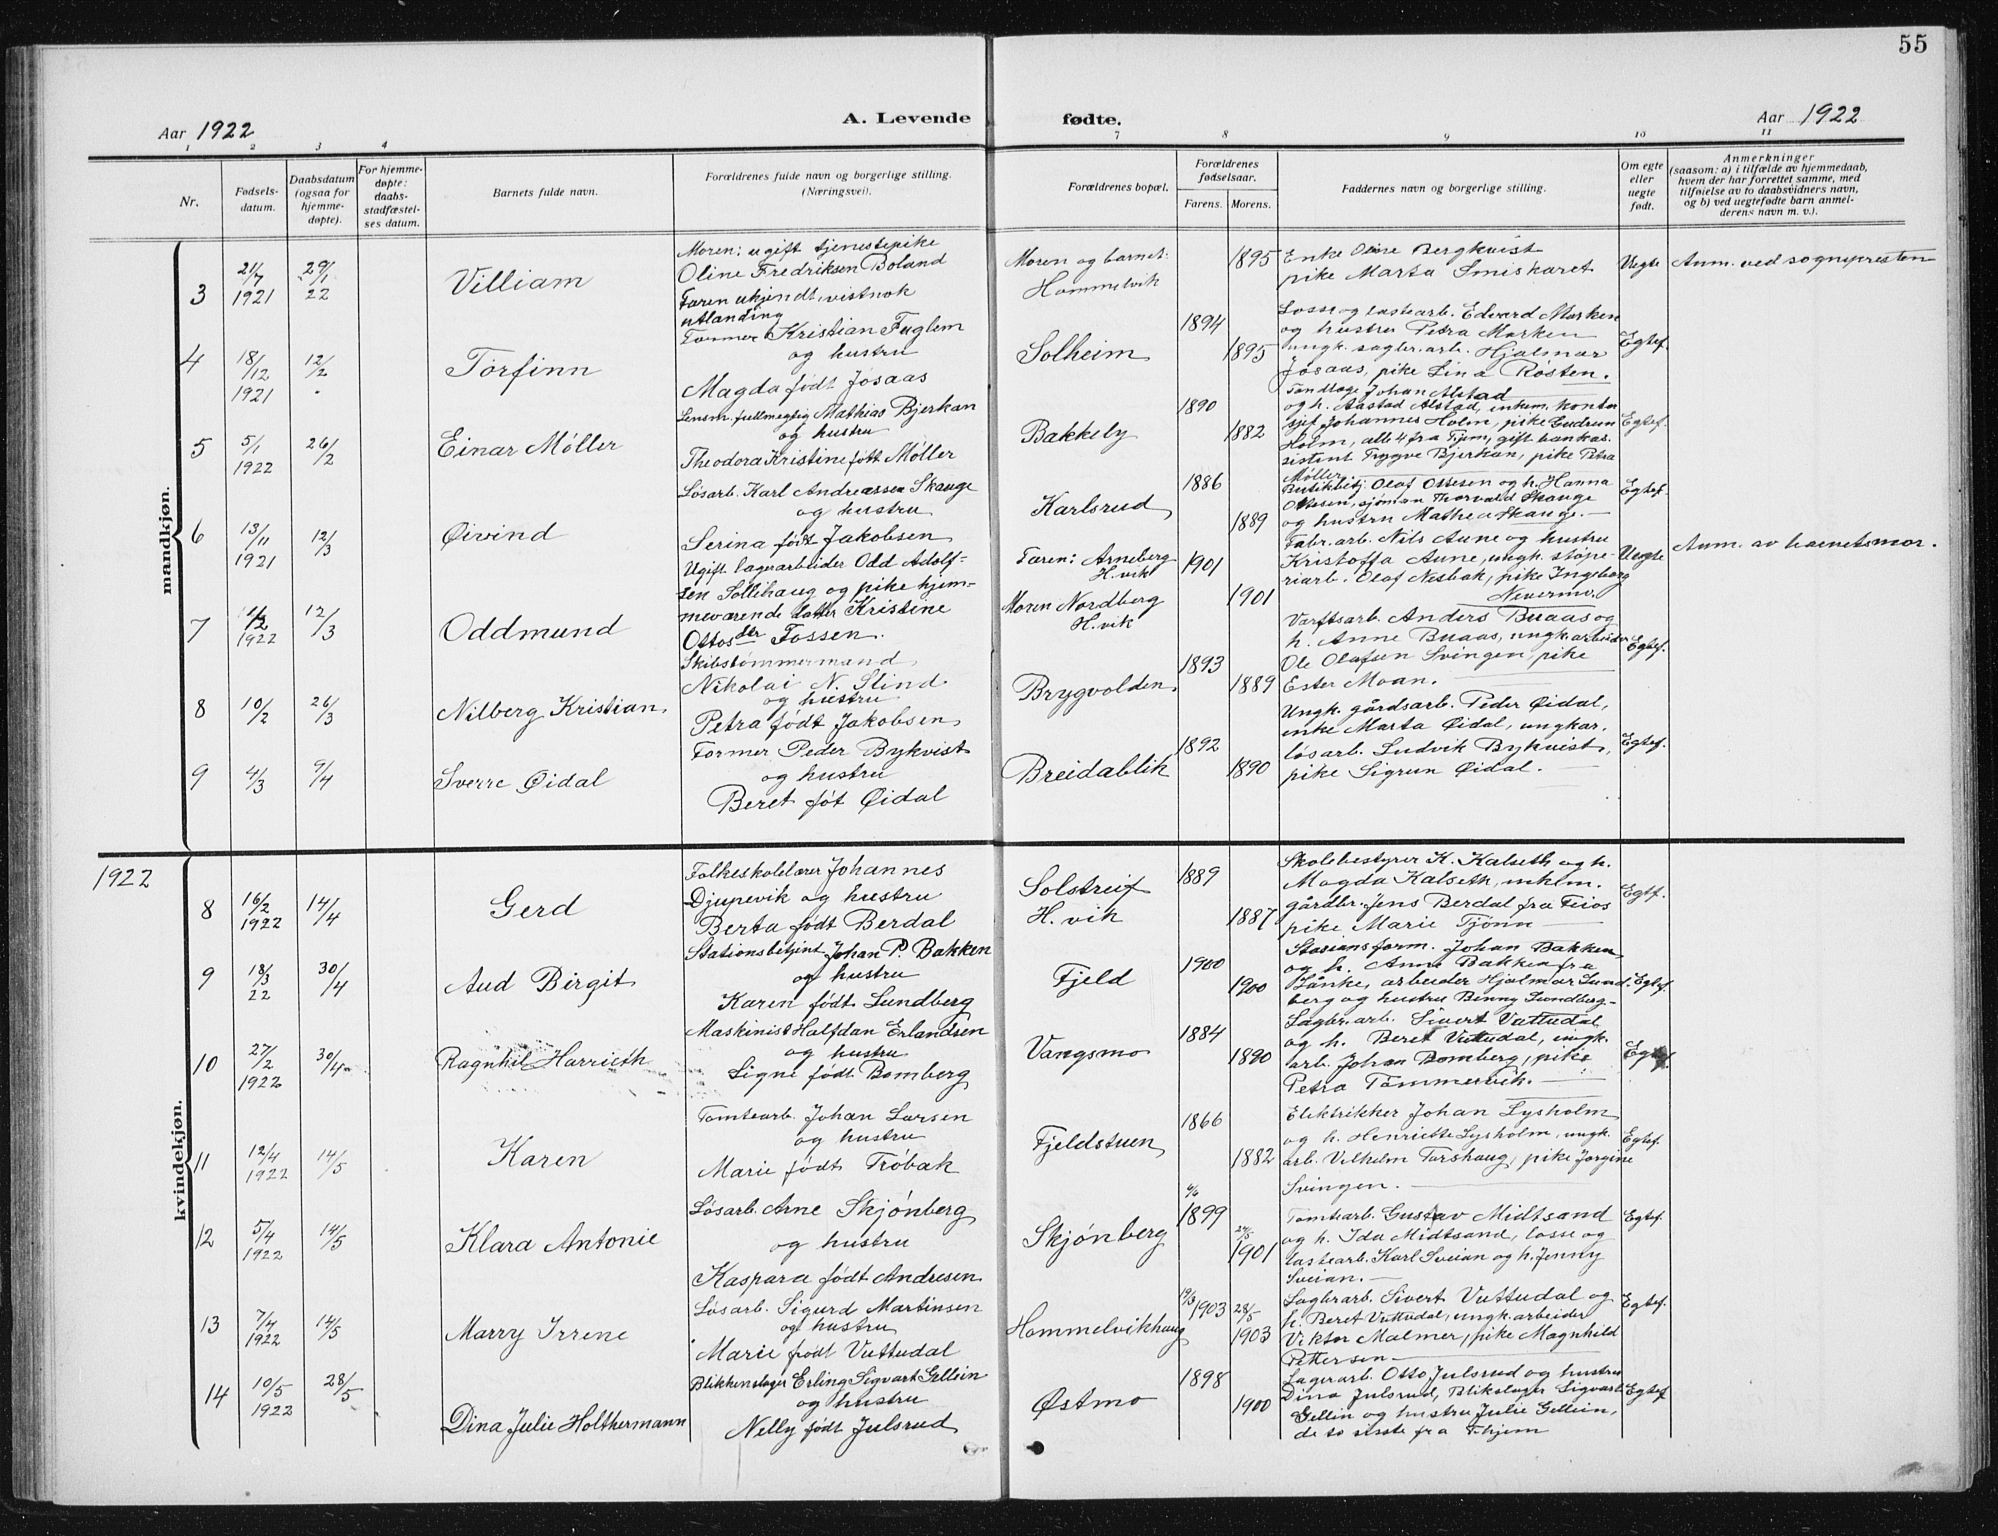 55
Aar 1922
A. Levende
fødte.
Aar 1922
1 2 3 4
7 8 9 10 11
Nr.
Fødsels-
datum.
Daabsdatum
(ogsaa for
hjemme-
døpte).
For hjemme-
døpte:
daabs-
stadfæstel-
ses datum.
Barnets fulde navn.
Forældrenes fulde navn og borgerlige stilling.
(Næringsvei).
Forældrenes bopæl.
Forældrenes
fødselsaar.
Farens. Morens.
Faddernes navn og borgerlige stilling.
Om egte
eller
uegte
født.
Anmerkninger
(saasom: a) i tilfælde av hjemmedaab,
hvem der har forrettet samme, med
tilføielse av to daabsvidners navn,
og b) ved uegtefødte barn anmel-
derens navn m. v.).
mandkjøn.
3
21/7
1921
29/1
22
Villiam
Moren: ugift tjenestepike
Oline Fredriksen Boland
Faren ukjendt, vistnok
utlanding
Moren og barnet:
Hommelvik
1895
Enke Oline Bergkvist
pike Marta Smiskaret
Uegte
Anm. ved sognepresten
4
18/12
1921
12/2
Torfinn
Former Kristian Fuglem
og hustru
Magda født Josaas
Solheim
1894
1895
Losse og lastearb. Edvard Marken
og hustru Petra Marken
ungk. sagbr. arb. Hjalmar
Josaas, pike Lina Rosten.
Egtef.
5
5/1
1922
26/2
Einar Møller
Lensm. fullmegtig Mathias Bjerkan
og hustru
Theodora Kristine født Møller
Bakkely
1890
1882
Tandlæge Johan Alstad
og h. Aastad Alstad, enkem. kontor
sjef Johannes Holm, pike Gudrun
Holm, alle 4 fra Tjem, gift bankas
sistent Trygve Bjerkan, pike Petra
Møller
Egtef.
6
13/11
1921
12/3
Øivind
Løsarb. Karl Andreassen Skauge
og hustru
Serina født Jakobsen
Karlsrud
1886
1889
Butikbetj. Olaf Ottesen og h. Hanna
Ottesen, sjøman Thorvald Skauge
og hustru Mathea Skauge.
Egtef.
7
1/2
1922
12/3
Oddmund
Ugift lagerarbeider Odd Adolf-
sen Sollihaug og pike hjem-
meværende datter Kristine
Ottosdtr Fossen.
Faren: Arneberg
H.vik
Moren Nordberg
H.vik
1901
1901
Fabr. arb. Nils Aune og hustru
Kristoffa Aune, ungk. støpe-
riarb. Olaf Nesbak, pike Ingeborg
Nevermo.
Uegte
Anm. av barnets mor.
8
10/2
26/3
Nilberg Kristian
Skibstømmermand
Nikolai N. Slind
og hustru
Petra født Jakobsen
Brygvolden
1893
1889
Varftsarb. Anders Buaas og
h. Anne Buaas, ungk arbeider
Ole Olafsen Svingen, pike
Ester Moan.
Egtef.
9
4/3
9/4
Sverre Øidal
Former Peder Bykvist
og hustru
Beret føt Øidal
Breidablik
1892
1890
Ungk. gårdsarb. Peder Øidal,
enke Marta Øidal, ungkar.
løsarb. Ludvik Bykvist,
pike Sigrun Øidal.
Egtef.
1922
kvindekjøn.
8
16/2
1922
14/4
Gerd
Folkeskolelærer Johannes
Djupevik og hustru
Berta født Berdal
H. vik
1889
1887
Skolebestyrer K. Kalseth og h.
Magda Kalseth, enkem.
gårdbr. Jens Berdal fra Feios
pike Marie Tjønn
Egtf.
9
18/3
22
30/4
Aud Birgit
Stationsbetjent Johan P. Bakken
og hustru
Karen født Lundberg
Fjeld
1900
1900
Stasjonsform. Johan Bakken
og h. Anne Bakken fra
Lånke, arbeider Hjalmar Lund-
berg og hustru Benny Lundberg
Egtef.
10
27/2
1922
30/4
Ragnhil Harrieth
Maskinist Halfdan Erlandsen
og hustru
Signe født Bomberg
Vangsmo
1884
1890
Sagbr. arb. Sivert Vuttudal
og h. Beret Vuttudal, ungk.
arb. Johan Bomberg, pike
Petra Tømmervik.
Egtef.
11
12/4
1922
14/5
Karen
Tomtearb. Johan Larsen
og hustru
Marie født Trøbak
Fjeldstuen
1866
1882
Elektrikker Johan Lysholm
og h. Henriette Lysholm, ungk.
arb. Vilhelm Torshaug, pike Jørgine
Svingen.
Egtef.
12
5/4
1922
14/5
Klara Antonie
Løsarb. Arne Skjønberg
og hustru
Kaspara født Andresen
Skjønberg
1899
1901
Tomtearb. Gustav Midtsand
og h. Ida Midtsand, losse og
lastearb. Karl Sveian og h. Jenny
Sveian.
Egtef.
13
7/4
1922
14/5
Marry Irrene
Løsarb. Sigurd Martinsen
og hustru
Marie født Vuttudal
Hommelvikhaug
1903
28/5
1903
Sagbr.arb. Sivert Vuttudal og
h. Beret Vuttudal, ungk. arbeider
Viktor Malmer, pike Magnhild
Pettersen
Egtef.
14
10/5
1922
28/5
Dina Julie Holthermann
Blikkenslager Erling Sigvart Gellein
og hustru
Nelly født Julsrud
Østmo
1898
1900
Lagerarb. Otto Julsrud og hustru
Dina Julsrud, Blikslager Sigvart
Gellin og hustru Julie Gellein,
de to sisste fra Thjem
Egtef